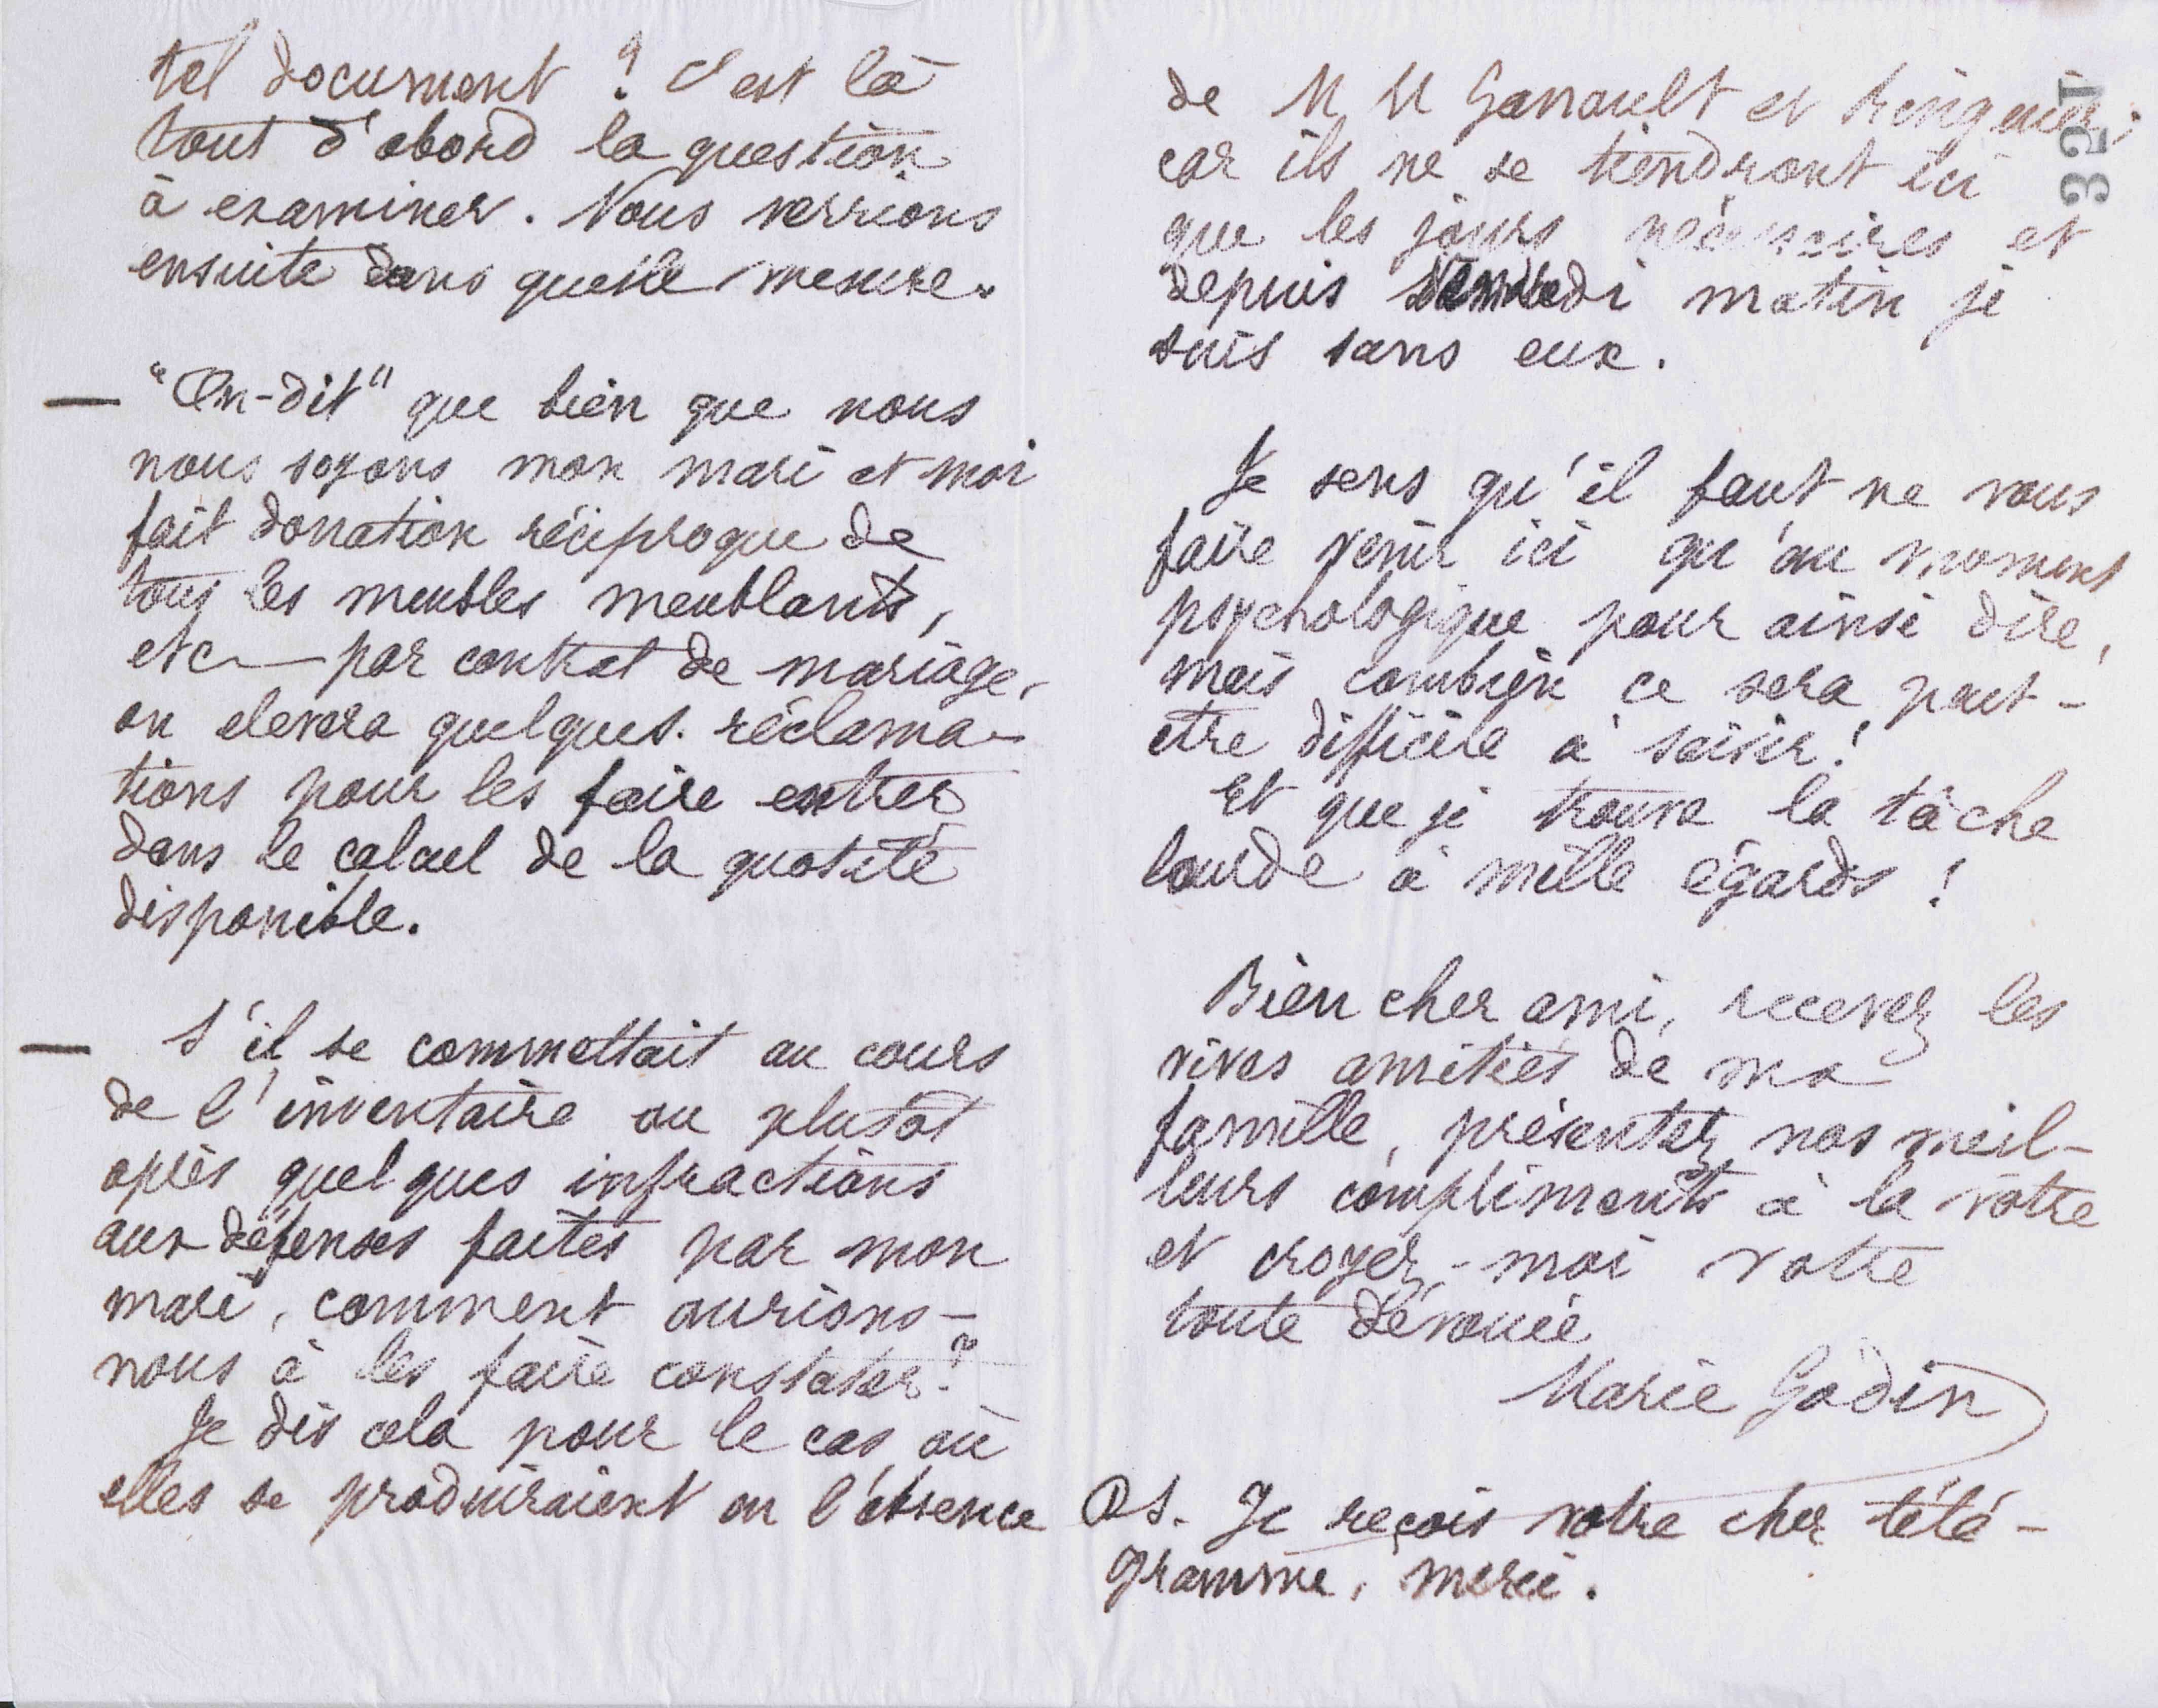 tel document ? C'est là
tout d'abord la question
à examiner. Nous verrions
ensuite dans quelle mesure.
— "On-dit" que bien que nous
nous soyons mon mari et moi
fait donation réciproque de
tous les meubles meublants,
etc— par contrat de mariage,
on elevera quelques réclama-
tions pour les faire entrer
dans le calcul de la quotité
disponible.
— S'il se commettait au cours
de l'inventaire ou plutôt
après quelques infractions
aux défenses faites par mon
mari, comment aurions-
nous à les faire constater ?
Je dis cela pour le cas où
elles se produiraient en l'absence
321
de M M Garrault et
car ils ne se tiendront ici
que les jours nécessaires et
depuis matin je
suis sans eux.
Je sens qu'il faut ne vous
faire venir ici qu'au moment
psychologique pour ainsi dire,
mais combien ce sera peut-
etre difficile à saisir !
Et que je trouve la tâche
lourde à mille égards !
Bien cher ami, recevez les
vives amitiés de ma
famille, présentez nos meil-
leurs compliments à la vôtre
et croyez-moi votre
toute dévouée
Marie Godin
PS. Je reçois votre cher télé-
gramme, merci.